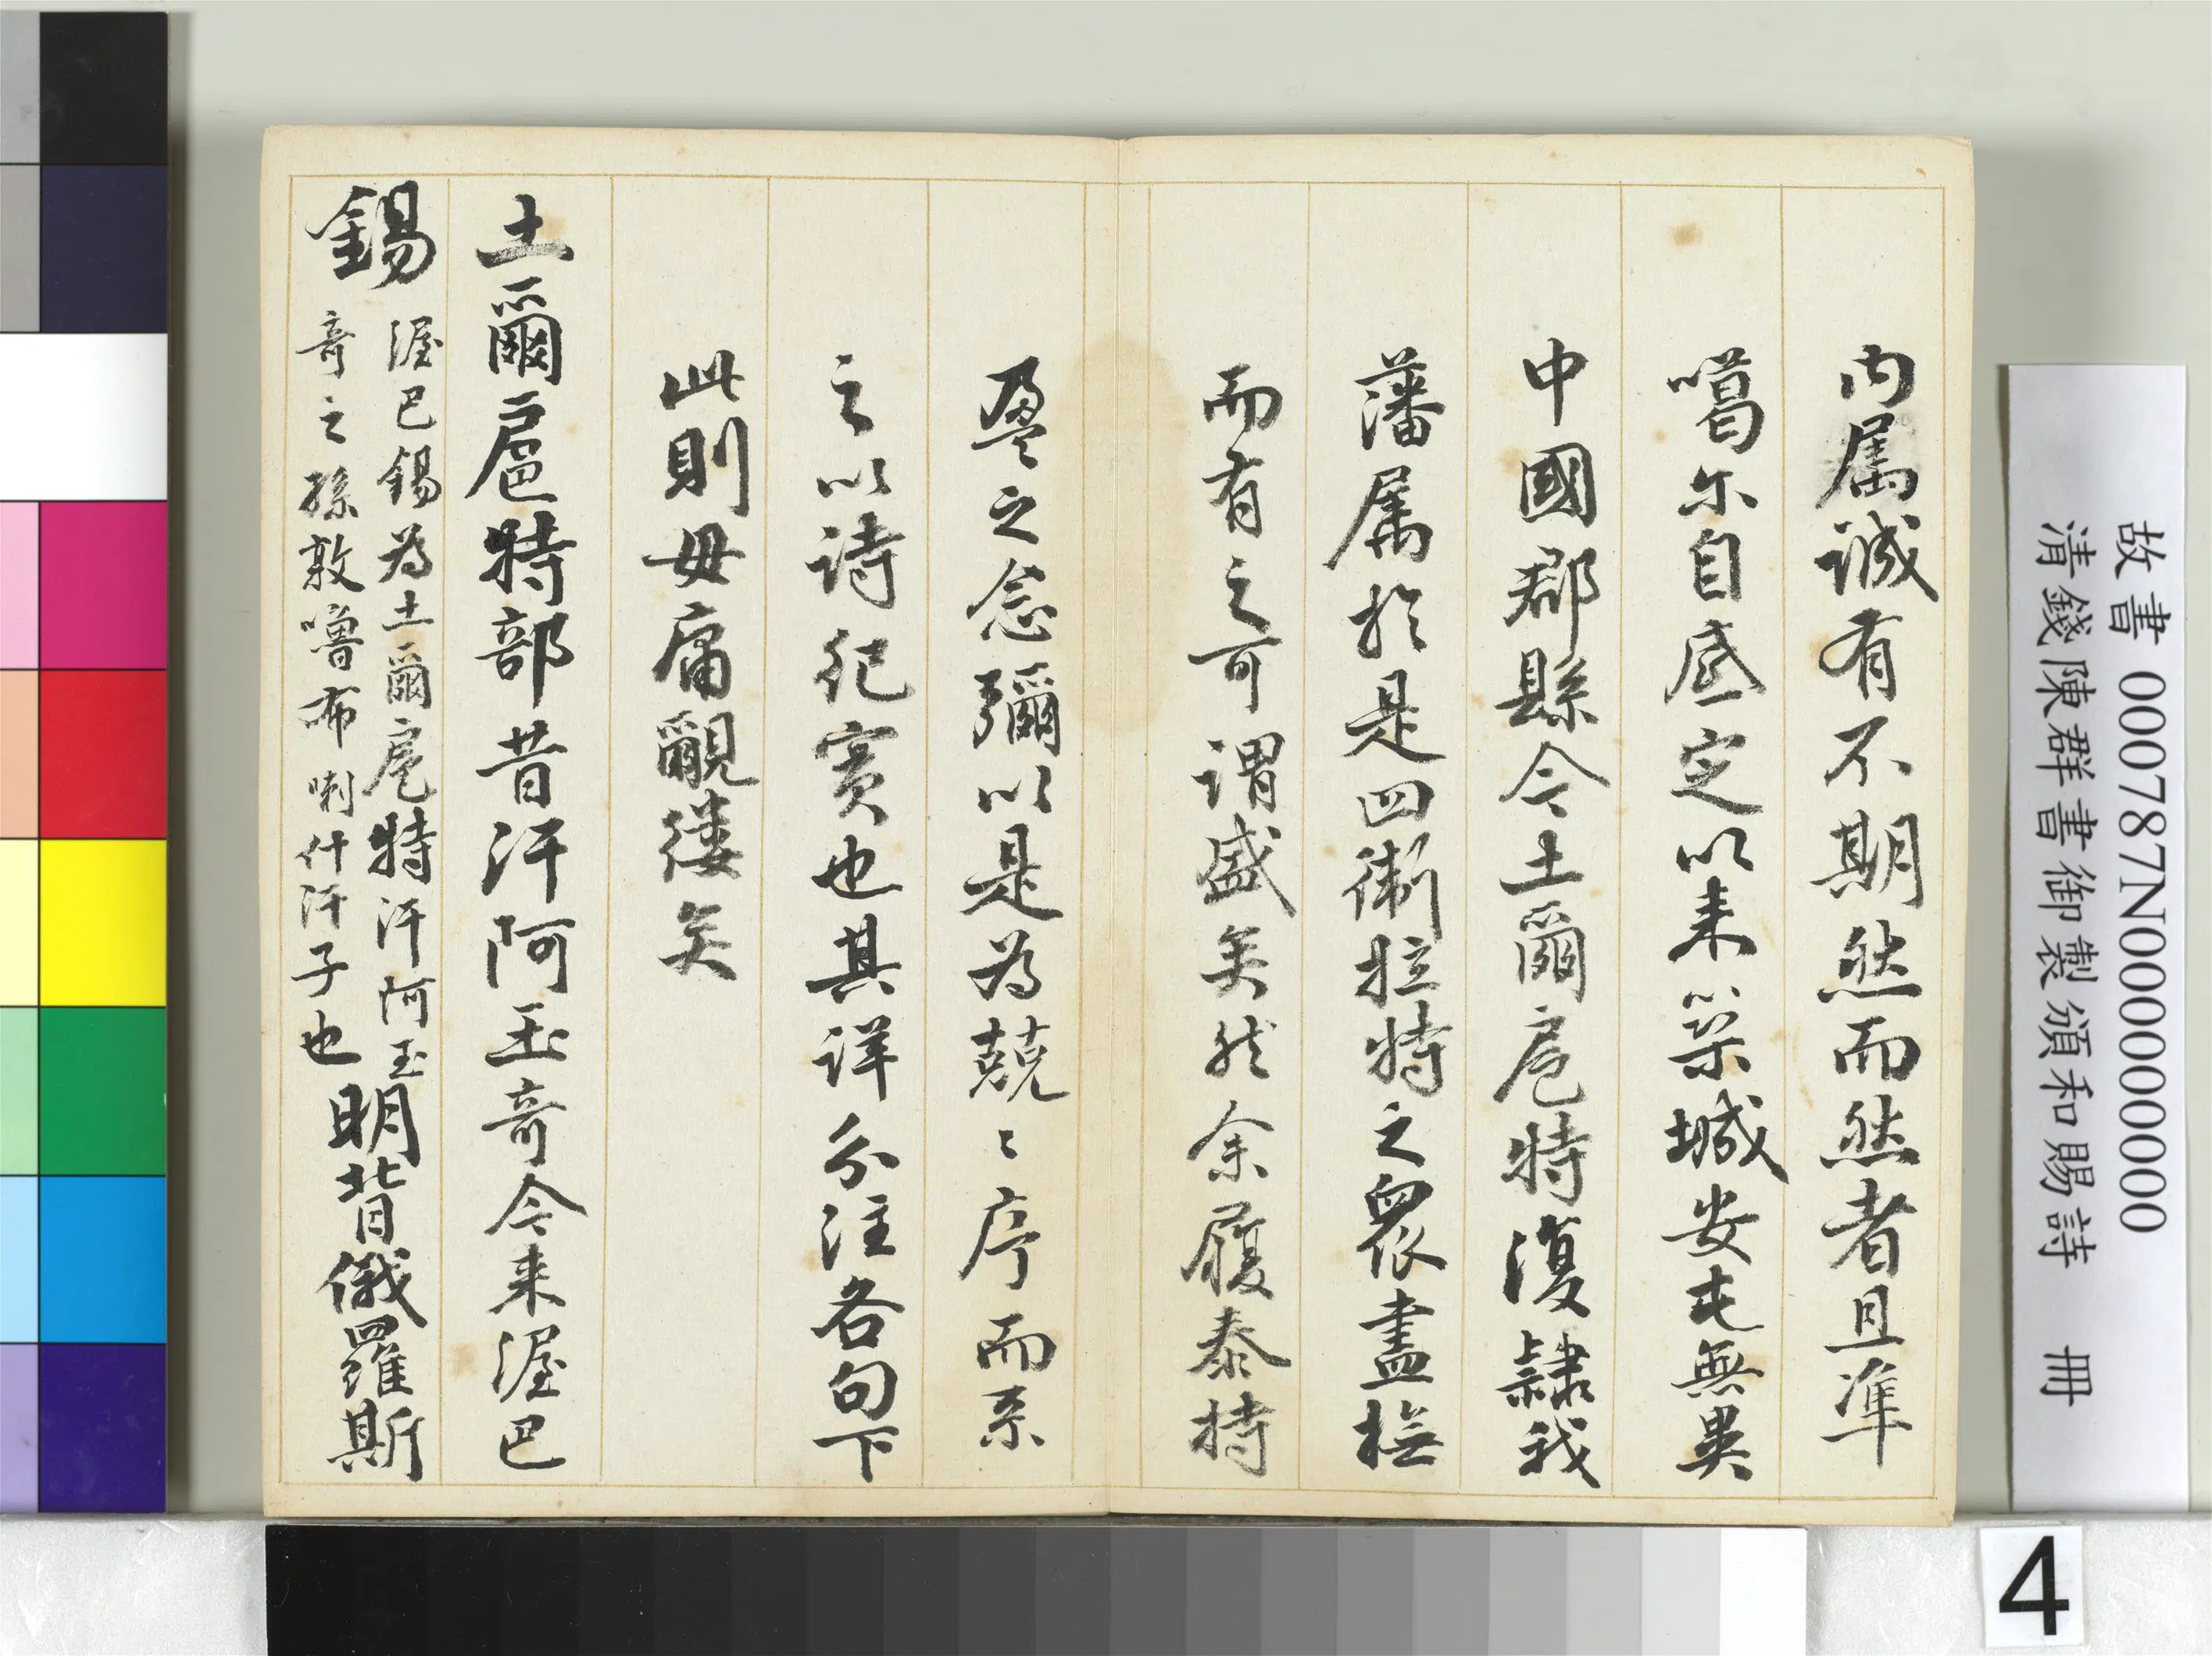 内属誠有不期然而然者且準
噶尔自底定以来築城安屯無異
中國郡縣今土爾扈特復隸我
藩属於是四衛拉特之衆盡撫
而有之可謂盛矣然余履泰持
盈之念彌以是為兢〻序而系
之以詩紀實也其詳分注各句下
此則毋庸覼縷矣
土爾扈特部昔汗阿玉奇今来渥巴
錫
渥巴錫為土爾扈特汗阿玉
奇之孫敦嚕布喇什汗子也
明背俄羅斯
故書 000787N000000000
清錢陳群書御製頒和賜詩 冊
4